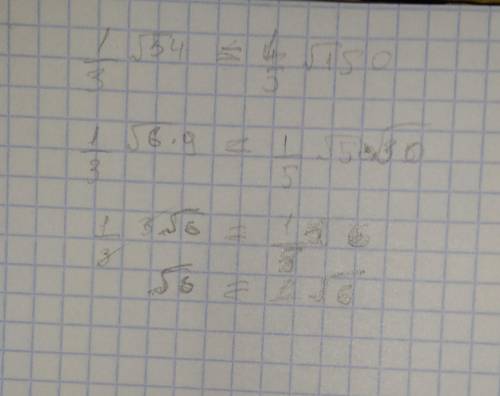 1/3 √54 = 1/5 √150
1/3 √6·9 = 1/5 √5·30
1/3 3√6 = 1/5
√6 = √6